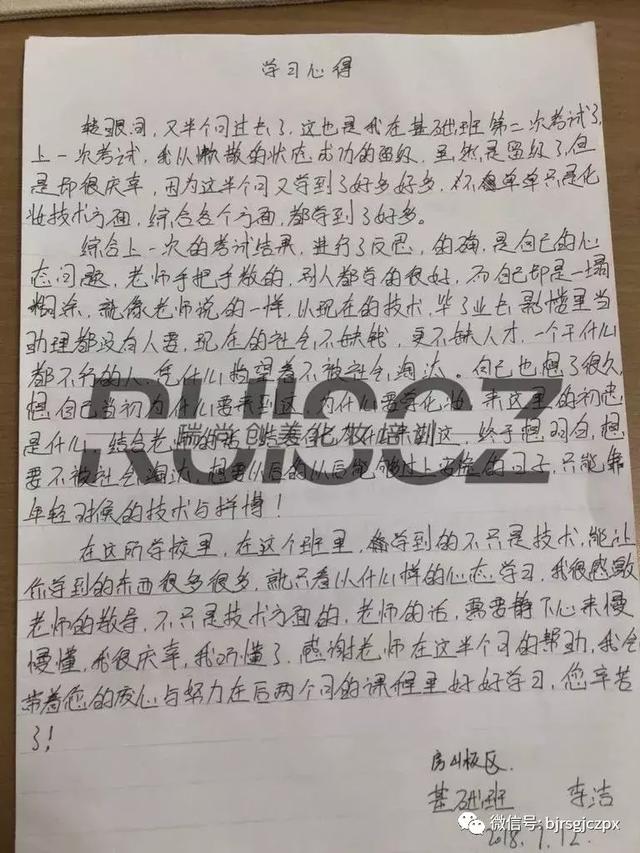 学习心得
转眼间,又半个月过去了,这也是我在基础班第二次考试了,
上一次考试,我从懒散的状态成功的留级,虽然是留级了,但
是却很庆幸,因为这半个月又学到了好多好多,不单单只是化
妆技术方面,综合各个方面,都学到了好多。
综合上一次的考试结果,进行了反思,的确,是自己的心
态问题,老师手把手教的,别人都学的很好,而自己却是一塌
糊涂,就像老师说的一样,以现在的技术,毕了业去影楼里当
助理都没有人要,现在的社会不缺钱,更不缺人才,一个干什么
都不行的人,凭什么指望着不被社会淘汰。自己也想了很久,
想自己当初为什么要来到这,为什么要学化妆,来这里的初衷
是什么,结合老师的话,
这,终于想明白,想
要不被社会淘汰,想要以后的以后能够过上安稳的日子,只能靠
年轻时候的技术与拼搏!
在这所学校里,在这个班里,能学到的不只是技术,能让
你学到的东西很多很多,就只看以什么样的心态学习,我很感激
老师的教导,不只是技术方面的,老师的话,需要静下心来慢
慢懂,我很庆幸,我听懂了,感谢老师在这半个月的帮助,我会
带着您的爱心与努力在后两个月的课程里好好学习,您辛苦
了!
房山校区
基础班 李洁
2018.7.12
RUISCZ
瑞尚创美化妆培训
微信号: bjrsgjczpx